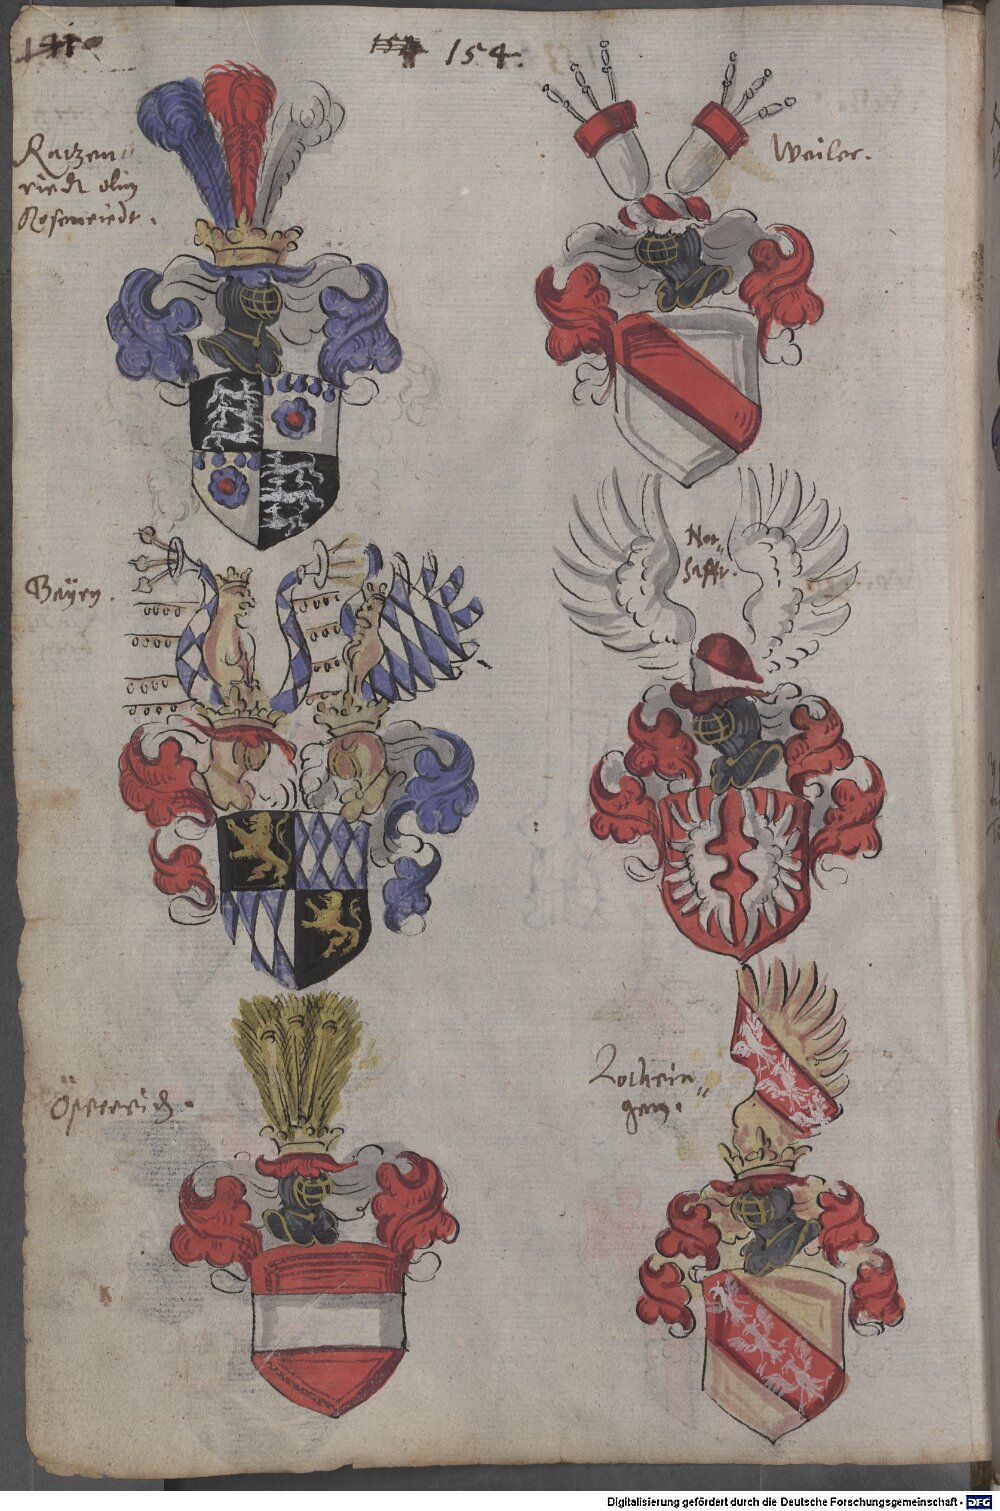 154.
Ratzen
riedt olim
Weiler.
Bayern.
Not
hafft.
Österreich.
Lothrin
gen.
Digitalisierung gefördert durch die Deutsche Forschungsgemeinschaft - DFG